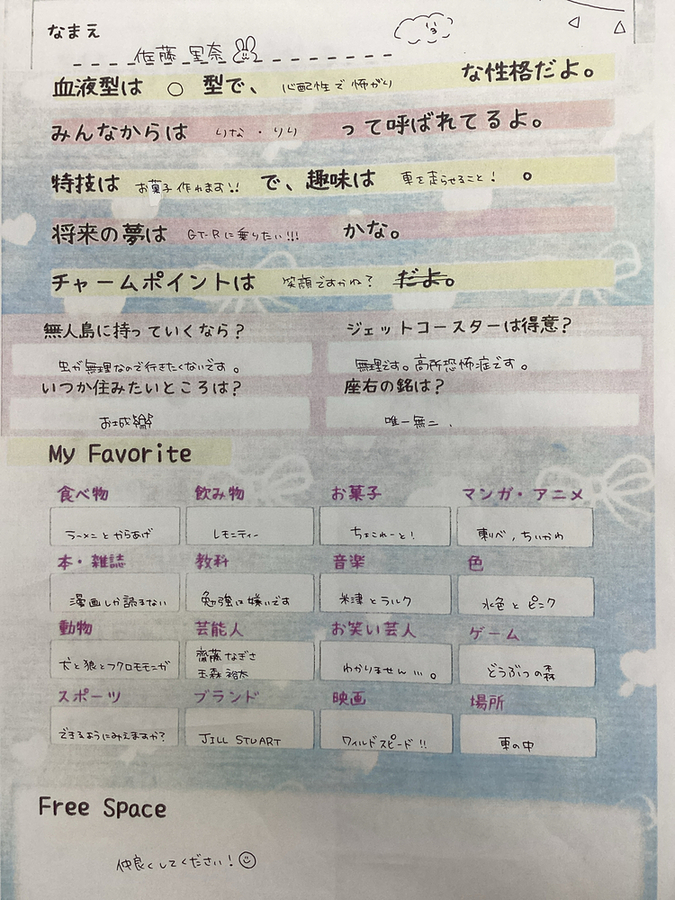 なまえ
佐藤 里奈
血液型は ○ 型で、 心配性で怖がり な性格だよ。
みんなからは りな・りり って呼ばれてるよ。
特技は お菓子作れます!! で、趣味は 車を走らせること! 。
将来の夢は GT-Rに乗りたい!!! かな。
チャームポイントは 笑顔ですかね? だよ。
無人島に持っていくなら? ジェットコースターは得意?
虫が無理なので行きたくないです。 無理です。高所恐怖症です。
いつか住みたいところは? 座右の銘は?
お城 唯一無二.
My Favorite
食べ物 飲み物 お菓子 マンガ・アニメ
ラーメンとからあげ レモンティー ちょこれーと! 東リベ,ちいかわ
本・雑誌 教科 音楽 色
漫画しか読まない 勉強は嫌いです 米津とラルク 水色とピンク
動物 芸能人 お笑い芸人 ゲーム
犬と狼とフクロモモンガ 齋藤なぎさ わかりません...。 どうぶつの森
玉森裕太
スポーツ ブランド 映画 場所
できるようにみえますか? JILL STUART ワイルドスピード!! 車の中
Free Space
仲良くしてください!